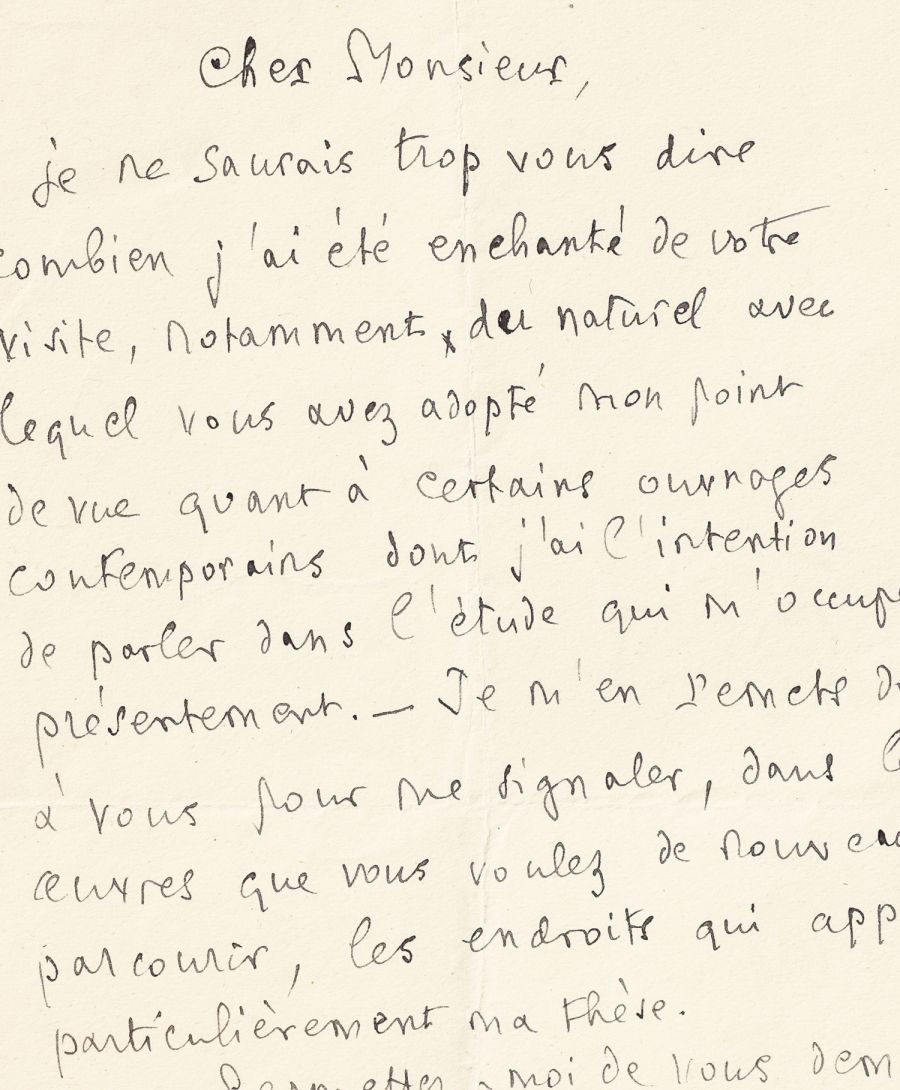 Cher Monsieur,
je ne saurais trop vous dire
combien j'ai été enchanté de votre
visite, notamment du naturel avec
lequel vous avez adopté mon point
de vue quant à certains ouvrages
contemporains dont j'ai l'intention
de parler dans l'étude qui m'occup
présentement. — Je m'en remets d
à vous pour me signaler, dans l
œuvres que vous voulez de nouveau
parcourir, les endroits qui app
particulièrement ma thèse.
Permettez-moi de vous dem